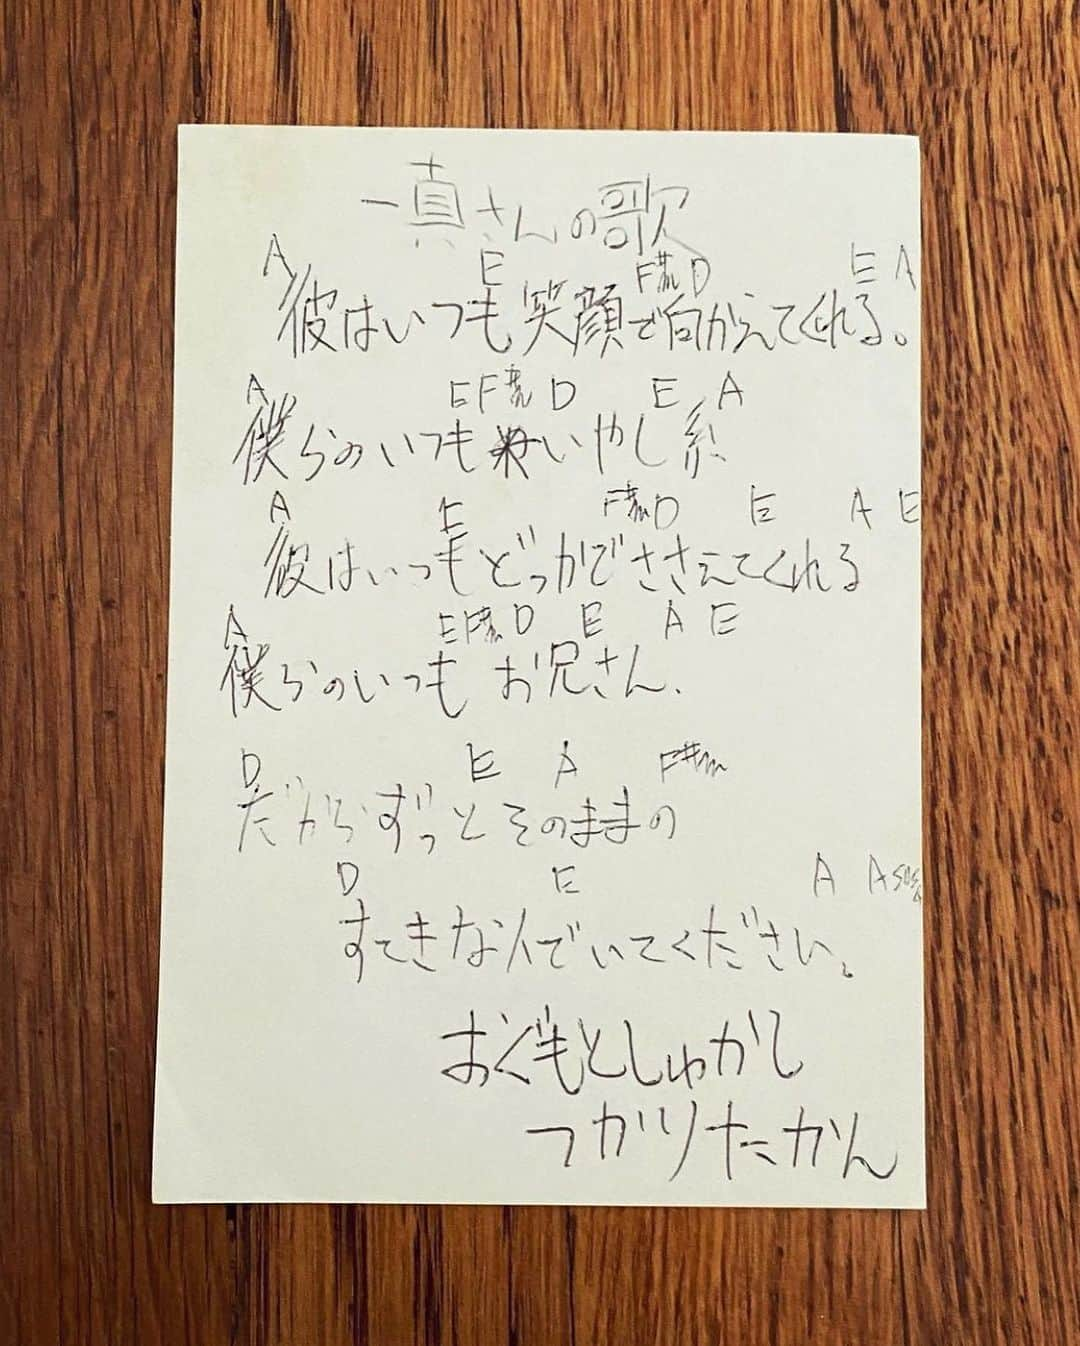 一真さんの歌
A E F#m D E A
彼はいつも笑顔で向かえてくれる。
A E F#m D E A
僕らのいつもいやし系
A E F#m D E A E
彼はいつもどっかでささえてくれる
A E F#m D E A E
僕らのいつもお兄さん、
D E A F#m
だからずっとそのままの
D E A Asus4
すてきな人でいてください。
おぐもとしゅかし
つかりたかん